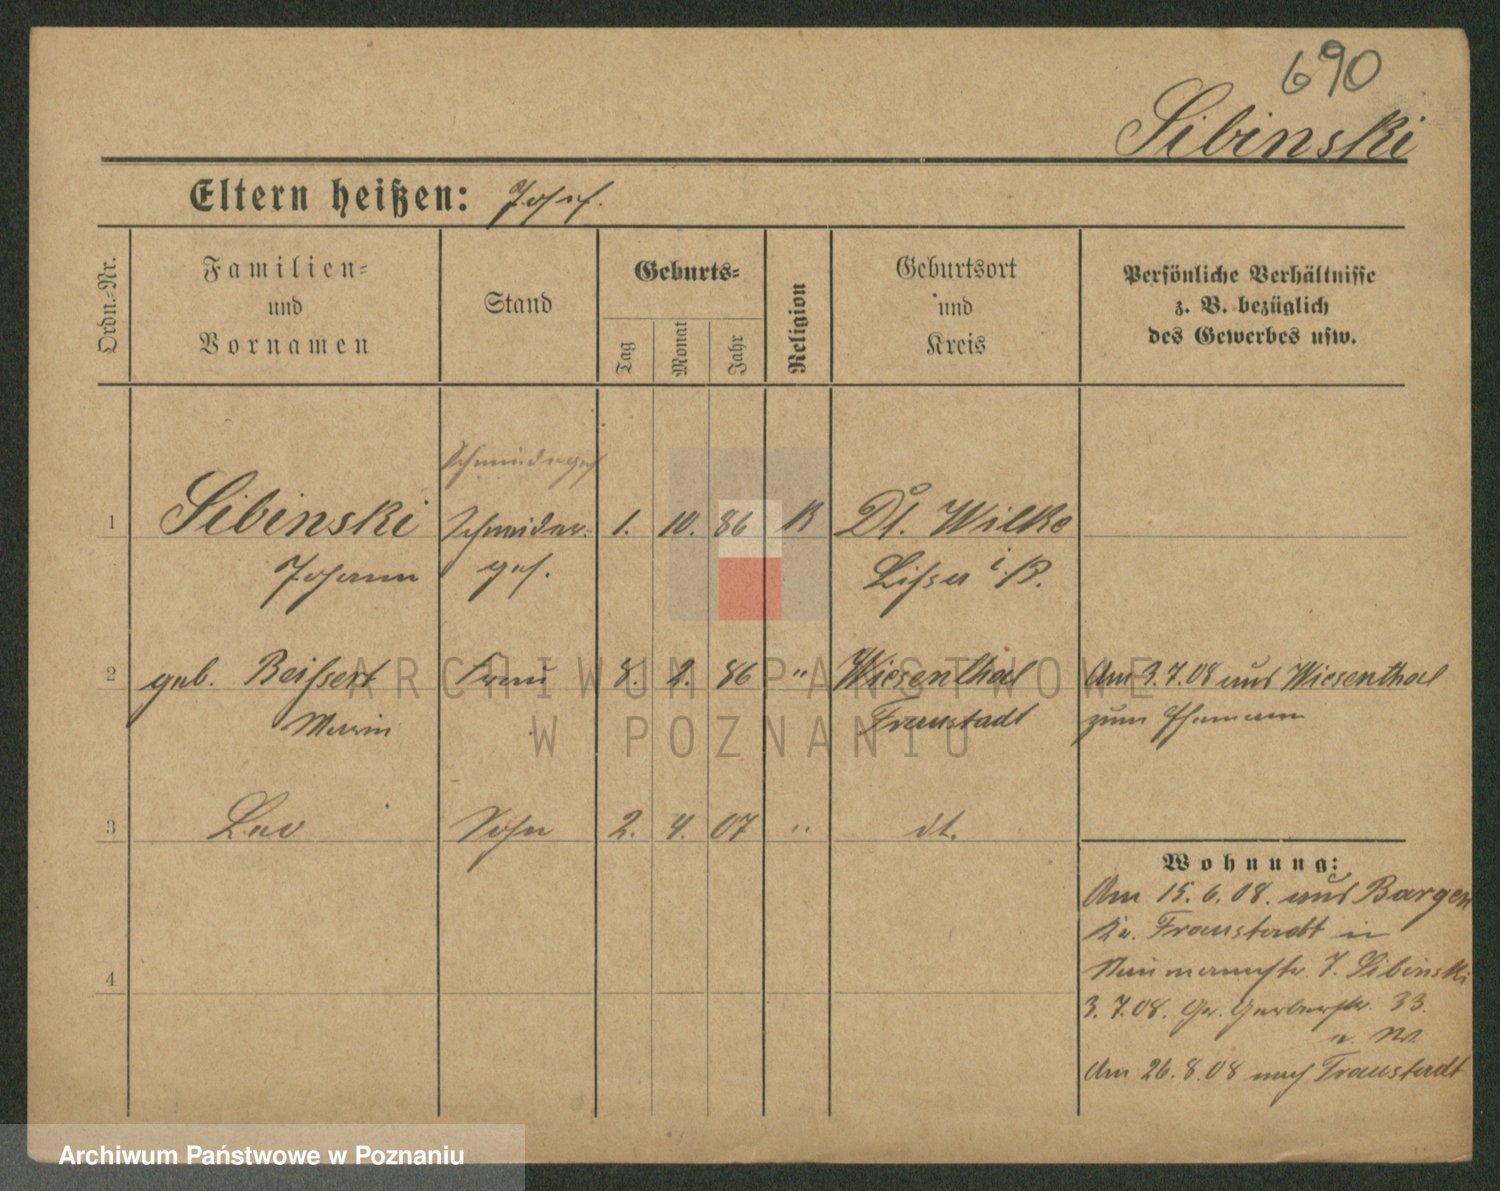 690
Sibinski
Eltern heißen: Josef.
Ordn.-Nr.
Familien- und Vornamen
Stand
Geburts-
Tag
Monat
Jahr
Religion
Geburtsort und Kreis
Persönliche Verhältnisse z. B. bezüglich des Gewerbes usw.
Schmiedeges
1 Sibinski Schneider- 1. 10. 86 K Dt. Wilke
Johann ges. Lissa i. P.
2 geb. Beissert Frau 8. 2. 86 " Wiesenthal Am 3.7.08 aus Wiesenthal
Marin Fraustadt zum Ehemann
3 Leo Sohn 2. 4. 07 " dt.
Wohnung:
Am 15. 6. 08. aus Bargen
Kr. Fraustadt in
Naumannstr. 7. Sibinski
4
3. 7. 08. Gr. Gerberstr. 33.
Am 26. 8. 08 nach Fraustadt
ARCHIWUM PAŃSTWOWE
W POZNANIU
Archiwum Państwowe w Poznaniu